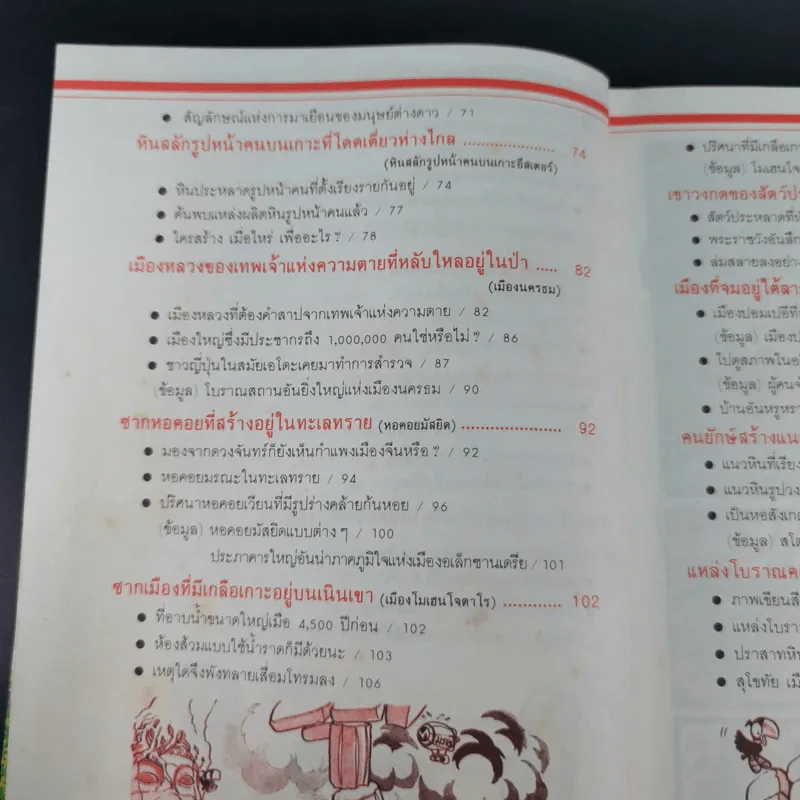 ● สัญลักษณ์แห่งการมาเยือนของมนุษย์ต่างดาว / 71
หินสลักรูปหน้าคนบนเกาะที่โดดเดี่ยวห่างไกล ..................... 74
(หินสลักรูปหน้าคนบนเกาะอีสเตอร์)
● หินประหลาดรูปหน้าคนที่ตั้งเรียงรายกันอยู่ / 74
● ค้นพบแหล่งผลิตหินรูปหน้าคนแล้ว / 77
● ใครสร้าง เมื่อไหร่ เพื่ออะไร? / 78
เมืองหลวงของเทพเจ้าแห่งความตายที่หลับใหลอยู่ในป่า ..... 82
(เมืองนครธม)
● เมืองหลวงที่ต้องคำสาปจากเทพเจ้าแห่งความตาย / 82
● เมืองใหญ่ซึ่งมีประชากรถึง 1,000,000 คนใช่หรือไม่? / 86
● ชาวญี่ปุ่นในสมัยเอโดะเคยมาทำการสำรวจ / 87
(ข้อมูล) โบราณสถานอันยิ่งใหญ่แห่งเมืองนครธม / 90
ซากหอคอยที่สร้างอยู่ในทะเลทราย (หอคอยมัสยิด) ..................... 92
● มองจากดวงจันทร์ก็ยังเห็นกำแพงเมืองจีนหรือ? / 92
● หอคอยมรณะในทะเลทราย / 94
● ปริศนาหอคอยเวียนที่มีรูปร่างคล้ายก้นหอย / 96
(ข้อมูล) หอคอยมัสยิดแบบต่าง ๆ / 100
ประภาคารใหญ่อันน่าภาคภูมิใจแห่งเมืองอเล็กซานเดรีย / 101
ซากเมืองที่มีเกลือเกาะอยู่บนเนินเขา (เมืองโมเฮนโจดาโร) ............ 102
● ที่อาบน้ำขนาดใหญ่เมื่อ 4,500 ปีก่อน / 102
● ห้องส้วมแบบใช้น้ำราดก็มีด้วยนะ / 103
● เหตุใดจึงพังทลายเสื่อมโทรมลง / 106
● ปริศนาที่มีเกลือเกา
(ข้อมูล) โมเฮนโจ
เขาวงกตของสัตว์ปร
● สัตว์ประหลาดที่
● พระราชวังอันลึก
● ล่มสลายลงอย่าง
เมืองที่จมอยู่ใต้ลา
● เมืองปอมเปอีที่
(ข้อมูล) เมืองป
● ไปดูสภาพในอ
(ข้อมูล) ผู้คน
● บ้านอันหรูหรา
คนยักษ์สร้างแน
● แนวหินที่เรียง
● แนวหินรูปวง
● เป็นหอสังเก
(ข้อมูล) สโต
แหล่งโบราณค
● ภาพเขียนสี
● แหล่งโบรา
● ปราสาทหิน
● สุโขทัย เมื